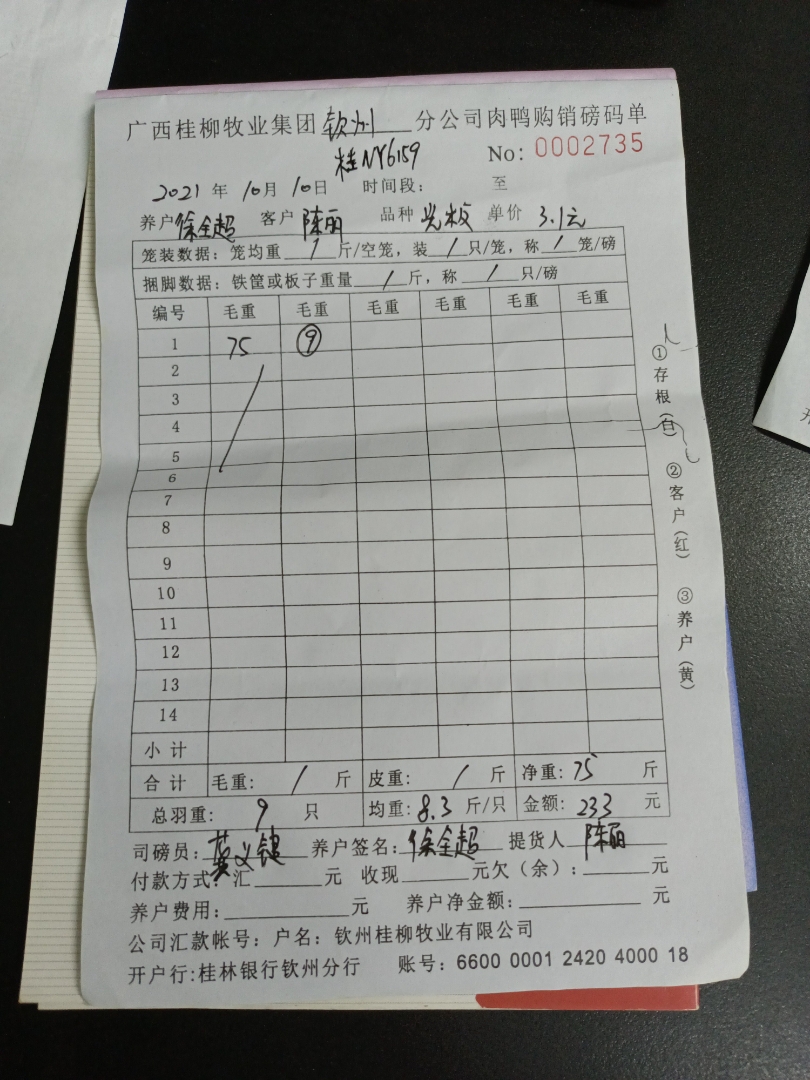 广西桂柳牧业集团钦州分公司肉鸭购销磅码单
桂NY6159 No: 0002735
2021年10月10日 时间段: 至
养户徐全超 客户 陈丽 品种 光板 单价 3.1元
笼装数据: 笼均重 / 斤/空笼, 装 / 只/笼, 称 / 笼/磅
捆脚数据: 铁筐或板子重量 / 斤, 称 / 只/磅
编号 毛重 毛重 毛重 毛重 毛重 毛重
1 75 ⑨
2
3
4
5
6
7
8
9
10
11
12
13
14
小计
合计 毛重: / 斤 皮重: / 斤 净重: 75 斤
总羽重: 9 只 均重: 8.3 斤/只 金额: 233 元
司磅员: 义 养户签名: 徐全超 提货人 陈丽
付款方式: 汇 元 收现 元欠(余): 元
养户费用: 元 养户净金额: 元
公司汇款帐号: 户名: 钦州桂柳牧业有限公司
开户行:桂林银行钦州分行 账号: 6600 0001 2420 4000 18
①存根(白) ②客户(红) ③养户(黄)